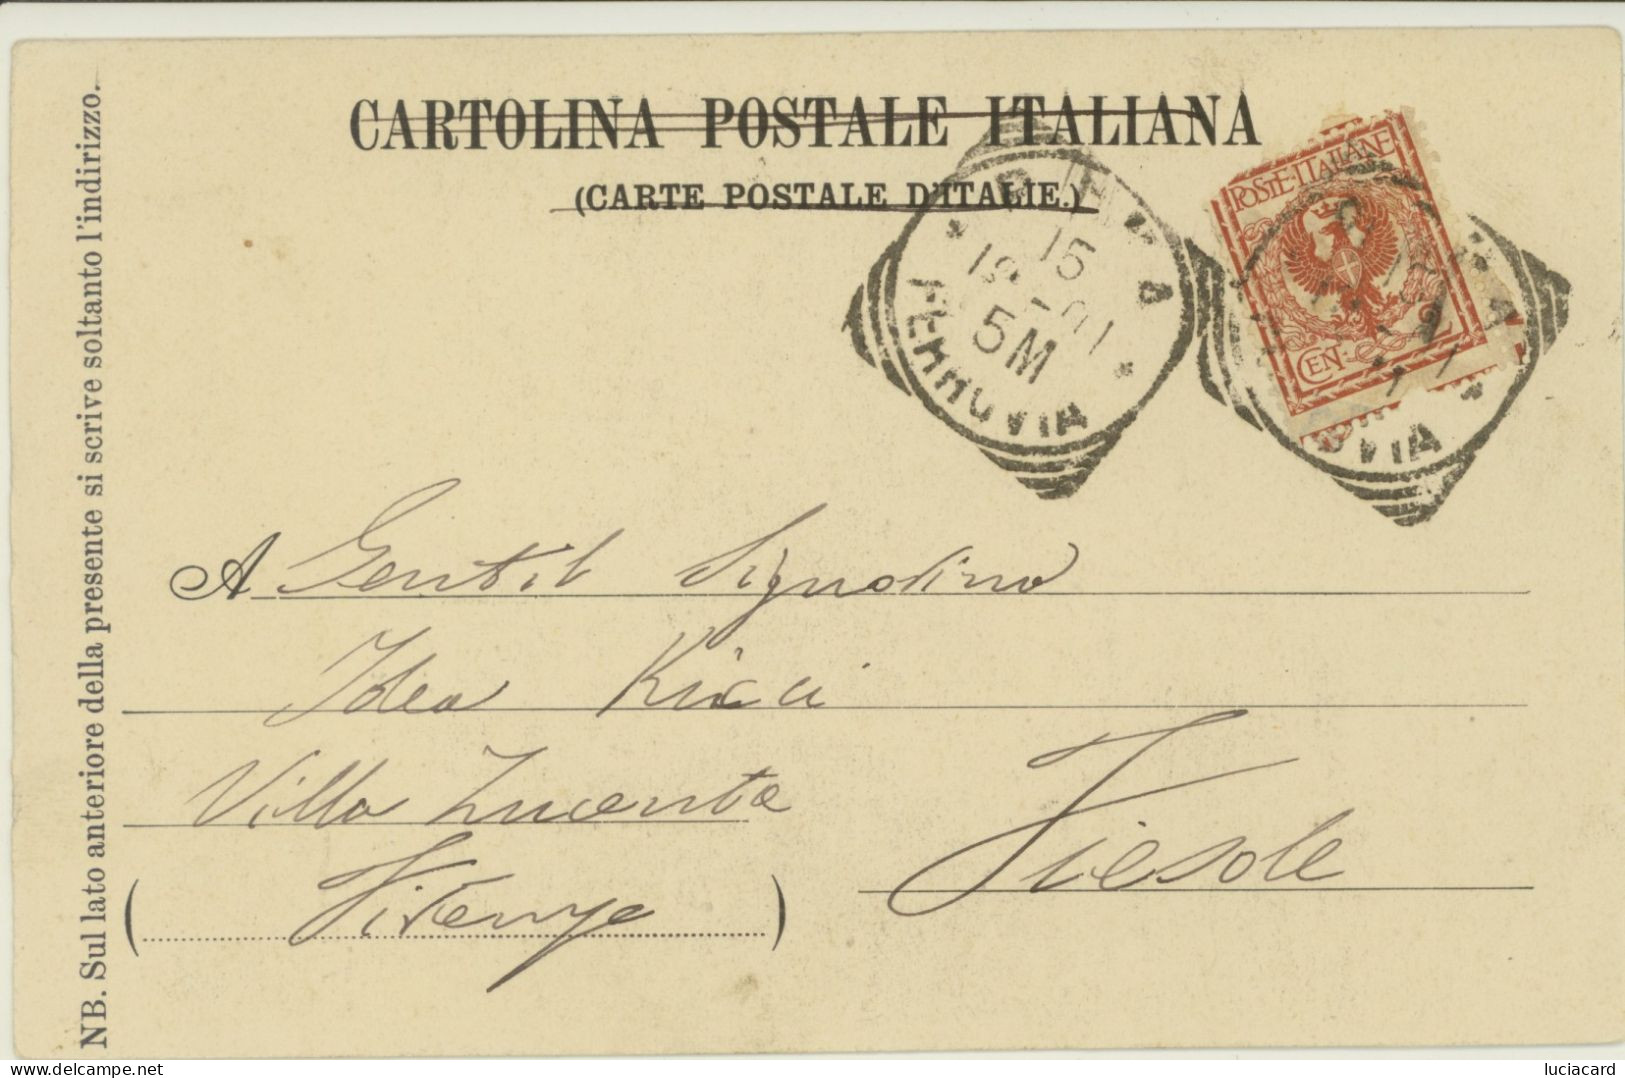 CARTOLINA POSTALE ITALIANA
(CARTE POSTALE D'ITALIE.)
NB. Sul lato anteriore della presente si scrive soltanto l'indirizzo.
POSTE·ITALIANE
CEN. 2
15
5M
FERROVIA
A Gentil Signorina
Idea Ricci
Villa
Fiesole
(Firenze)
luciacard